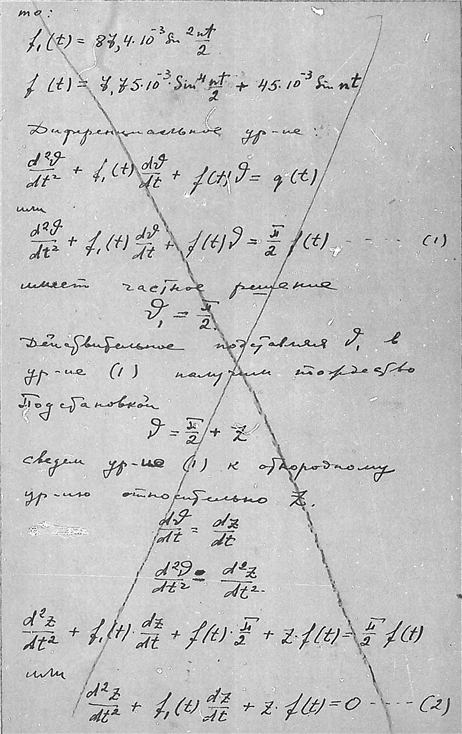 то:
f₁(t) = 87,4·10⁻³ Sin² nt/2
f (t) = 7,75·10⁻³·Sin⁴ nt/2 + 45·10⁻³ Sin nt
Дифференциальное ур-ие:
d²ϑ/dt² + f₁(t) dϑ/dt + f(t) ϑ = q(t)
или
d²ϑ/dt² + f₁(t) dϑ/dt + f(t) ϑ = π/2 f(t) ---- (1)
имеет частное решение
ϑ₁ = π/2
Действительное подставляя ϑ₁ в
ур-ие (1) получим тождество
Подстановкой
ϑ = π/2 + z
сведем ур-ие (1) к однородному
ур-ию относительно z.
dϑ/dt = dz/dt
d²ϑ/dt² = d²z/dt².
d²z/dt² + f₁(t)·dz/dt + f(t)·π/2 + z·f(t) = π/2 f(t)
или
d²z/dt² + f₁(t) dz/dt + z·f(t) = 0 ---- (2)